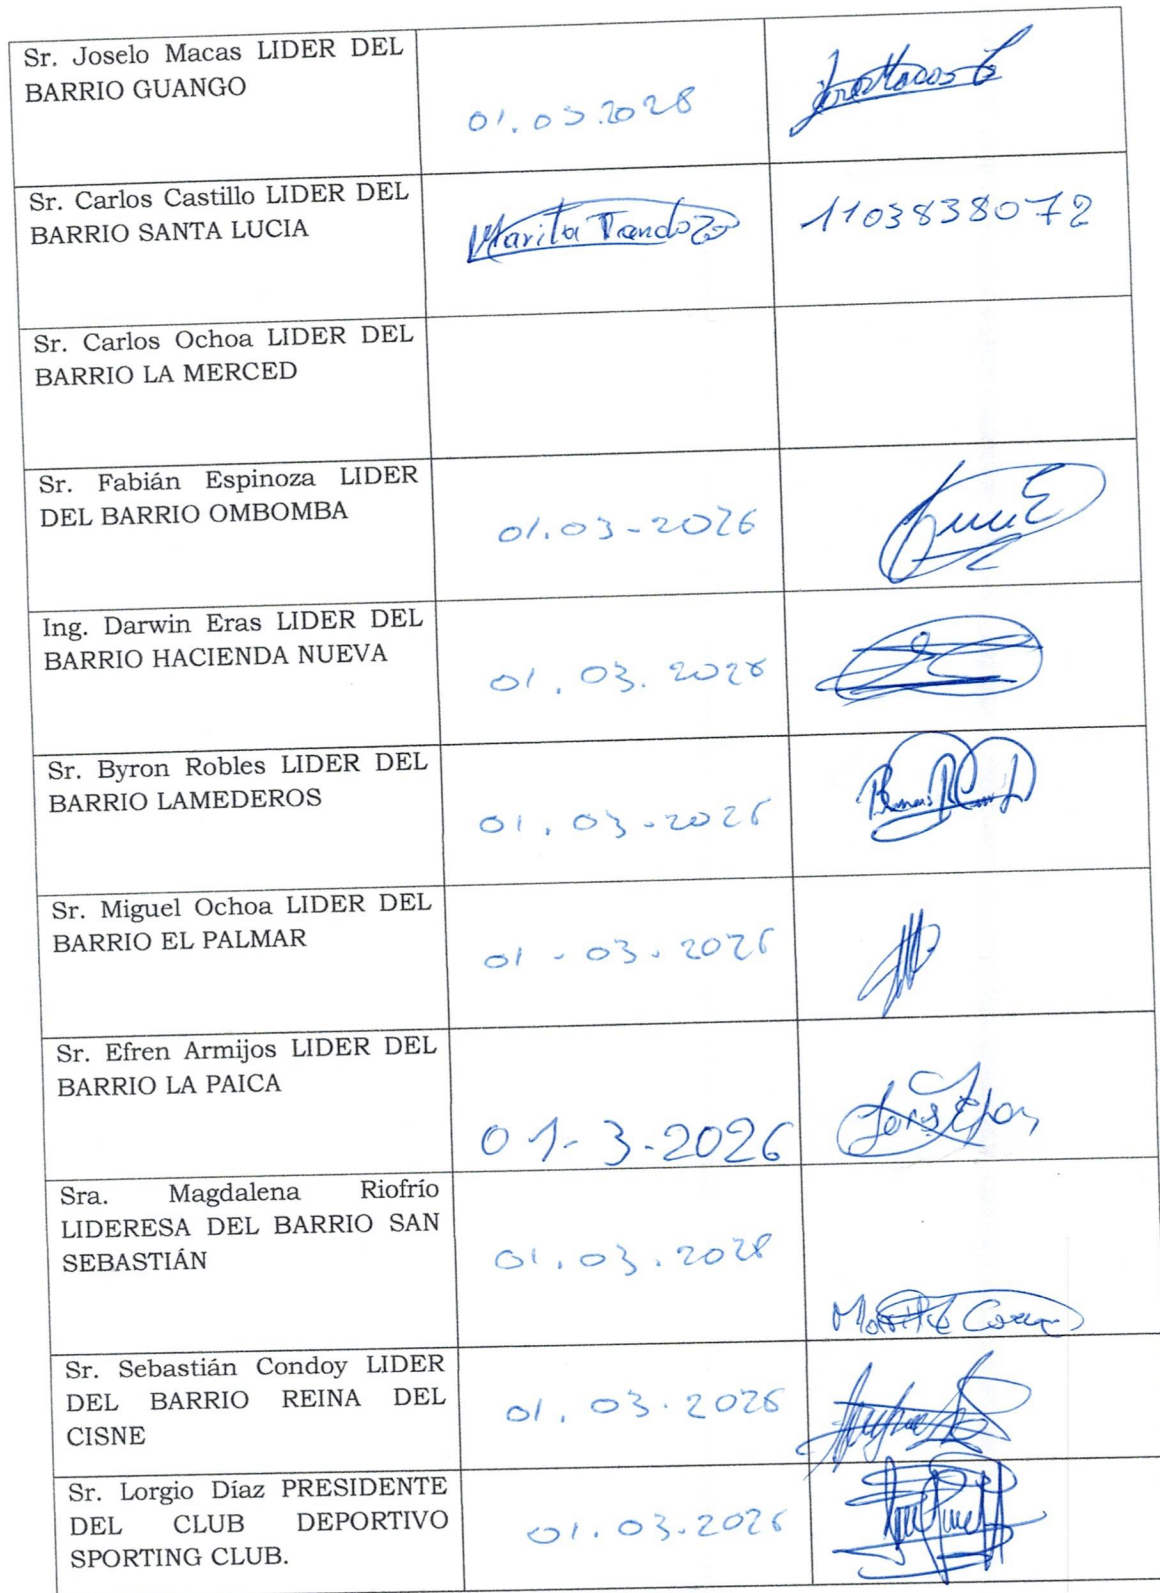 Sr. Joselo Macas LIDER DEL
BARRIO GUANGO
01.03.2028
Sr. Carlos Castillo LIDER DEL
BARRIO SANTA LUCIA
Marita Tandazo
1103838072
Sr. Carlos Ochoa LIDER DEL
BARRIO LA MERCED
Sr. Fabián Espinoza LIDER
DEL BARRIO OMBOMBA
01.03-2026
Ing. Darwin Eras LIDER DEL
BARRIO HACIENDA NUEVA
01.03.2026
Sr. Byron Robles LIDER DEL
BARRIO LAMEDEROS
01.03-2026
Sr. Miguel Ochoa LIDER DEL
BARRIO EL PALMAR
01-03.2026
Sr. Efren Armijos LIDER DEL
BARRIO LA PAICA
01-3-2026
Sra. Magdalena Riofrío
LIDERESA DEL BARRIO SAN
SEBASTIÁN
01.03.2028
Sr. Sebastián Condoy LIDER
DEL BARRIO REINA DEL
CISNE
01.03.2026
Sr. Lorgio Díaz PRESIDENTE
DEL CLUB DEPORTIVO
SPORTING CLUB.
01.03.2026